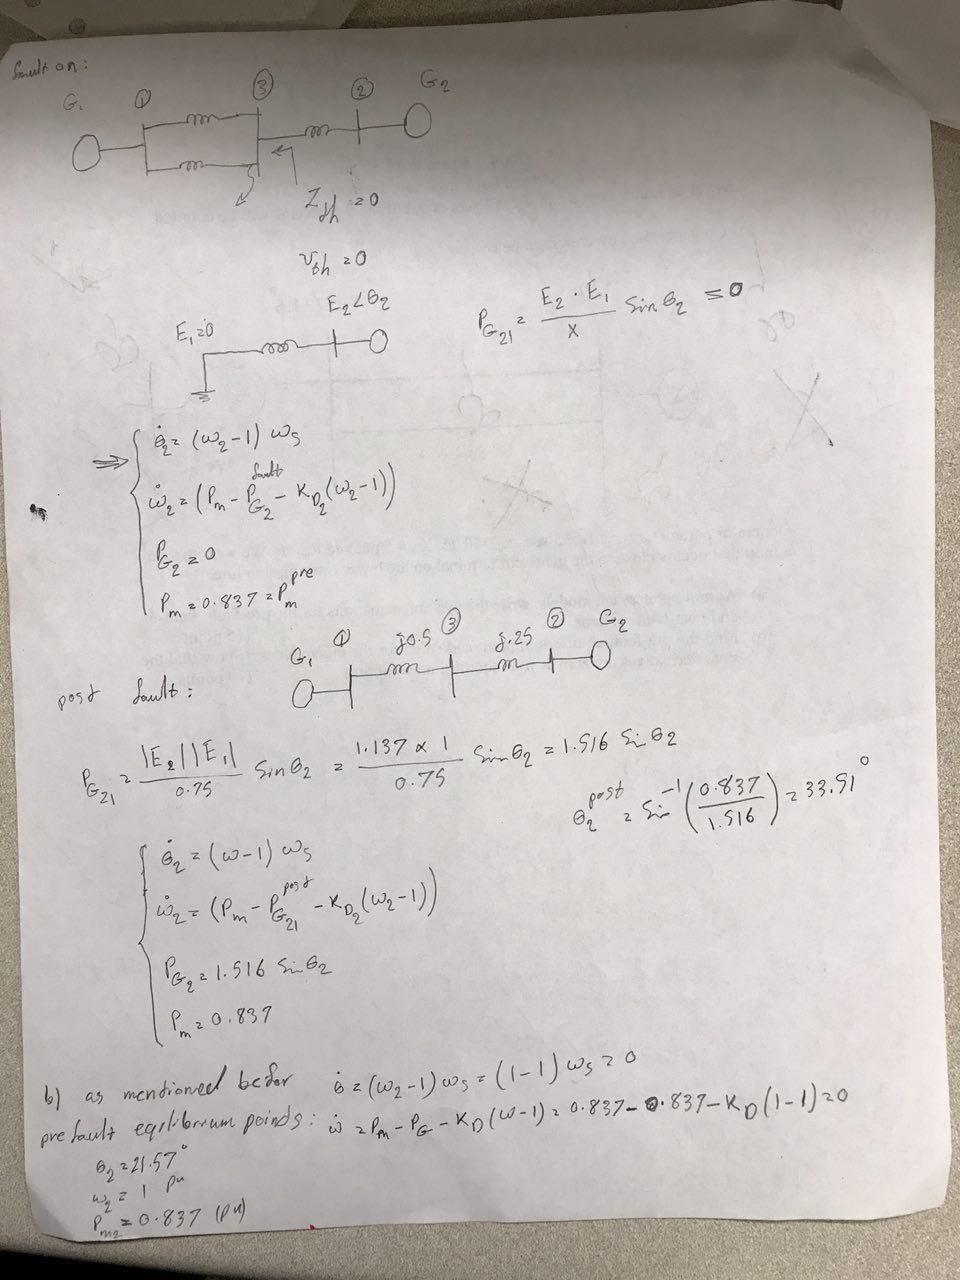 fault on:
G₁ ① ③ ② G₂
Z_th = 0
V_th = 0
E₂∠θ₂
E₁=0
P_G₂₁ = E₂ · E₁ / X Sin θ₂ = 0
θ̇₂ = (ω₂-1) ω_s
ω̇₂ = (P_m - P_G₂^fault - K_D₂(ω₂-1))
P_G₂ = 0
P_m = 0.837 = P_m^pre
post fault:
G₁ ① j0.5 ③ j.25 ② G₂
P_G₂₁ = |E₂||E₁| / 0.75 Sin θ₂ = 1.137 × 1 / 0.75 Sin θ₂ = 1.516 Sin θ₂
θ₂^post = Sin⁻¹(0.837 / 1.516) = 33.51°
θ̇₂ = (ω-1) ω_s
ω̇₂ = (P_m - P_G₂₁^post - K_D₂(ω₂-1))
P_G₂ = 1.516 Sin θ₂
P_m = 0.837
b) as mentioned befor
prefault eqilibrium points:
θ̇ = (ω₂-1) ω_s = (1-1) ω_s = 0
ω̇ = P_m - P_G - K_D(ω-1) = 0.837 - 0.837 - K_D(1-1) = 0
θ₂ = 21.57°
ω₂ = 1 pu
P_m₂ = 0.837 (pu)